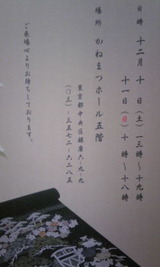 日時 十二月 十日(土)一三時〜十九時
十一日(日)十時〜十八時
場所 かねまつホール五階
東京都中央区銀座六-九-九
(〇三)三五七二-六二八五
ご来場心よりお待ちしております。